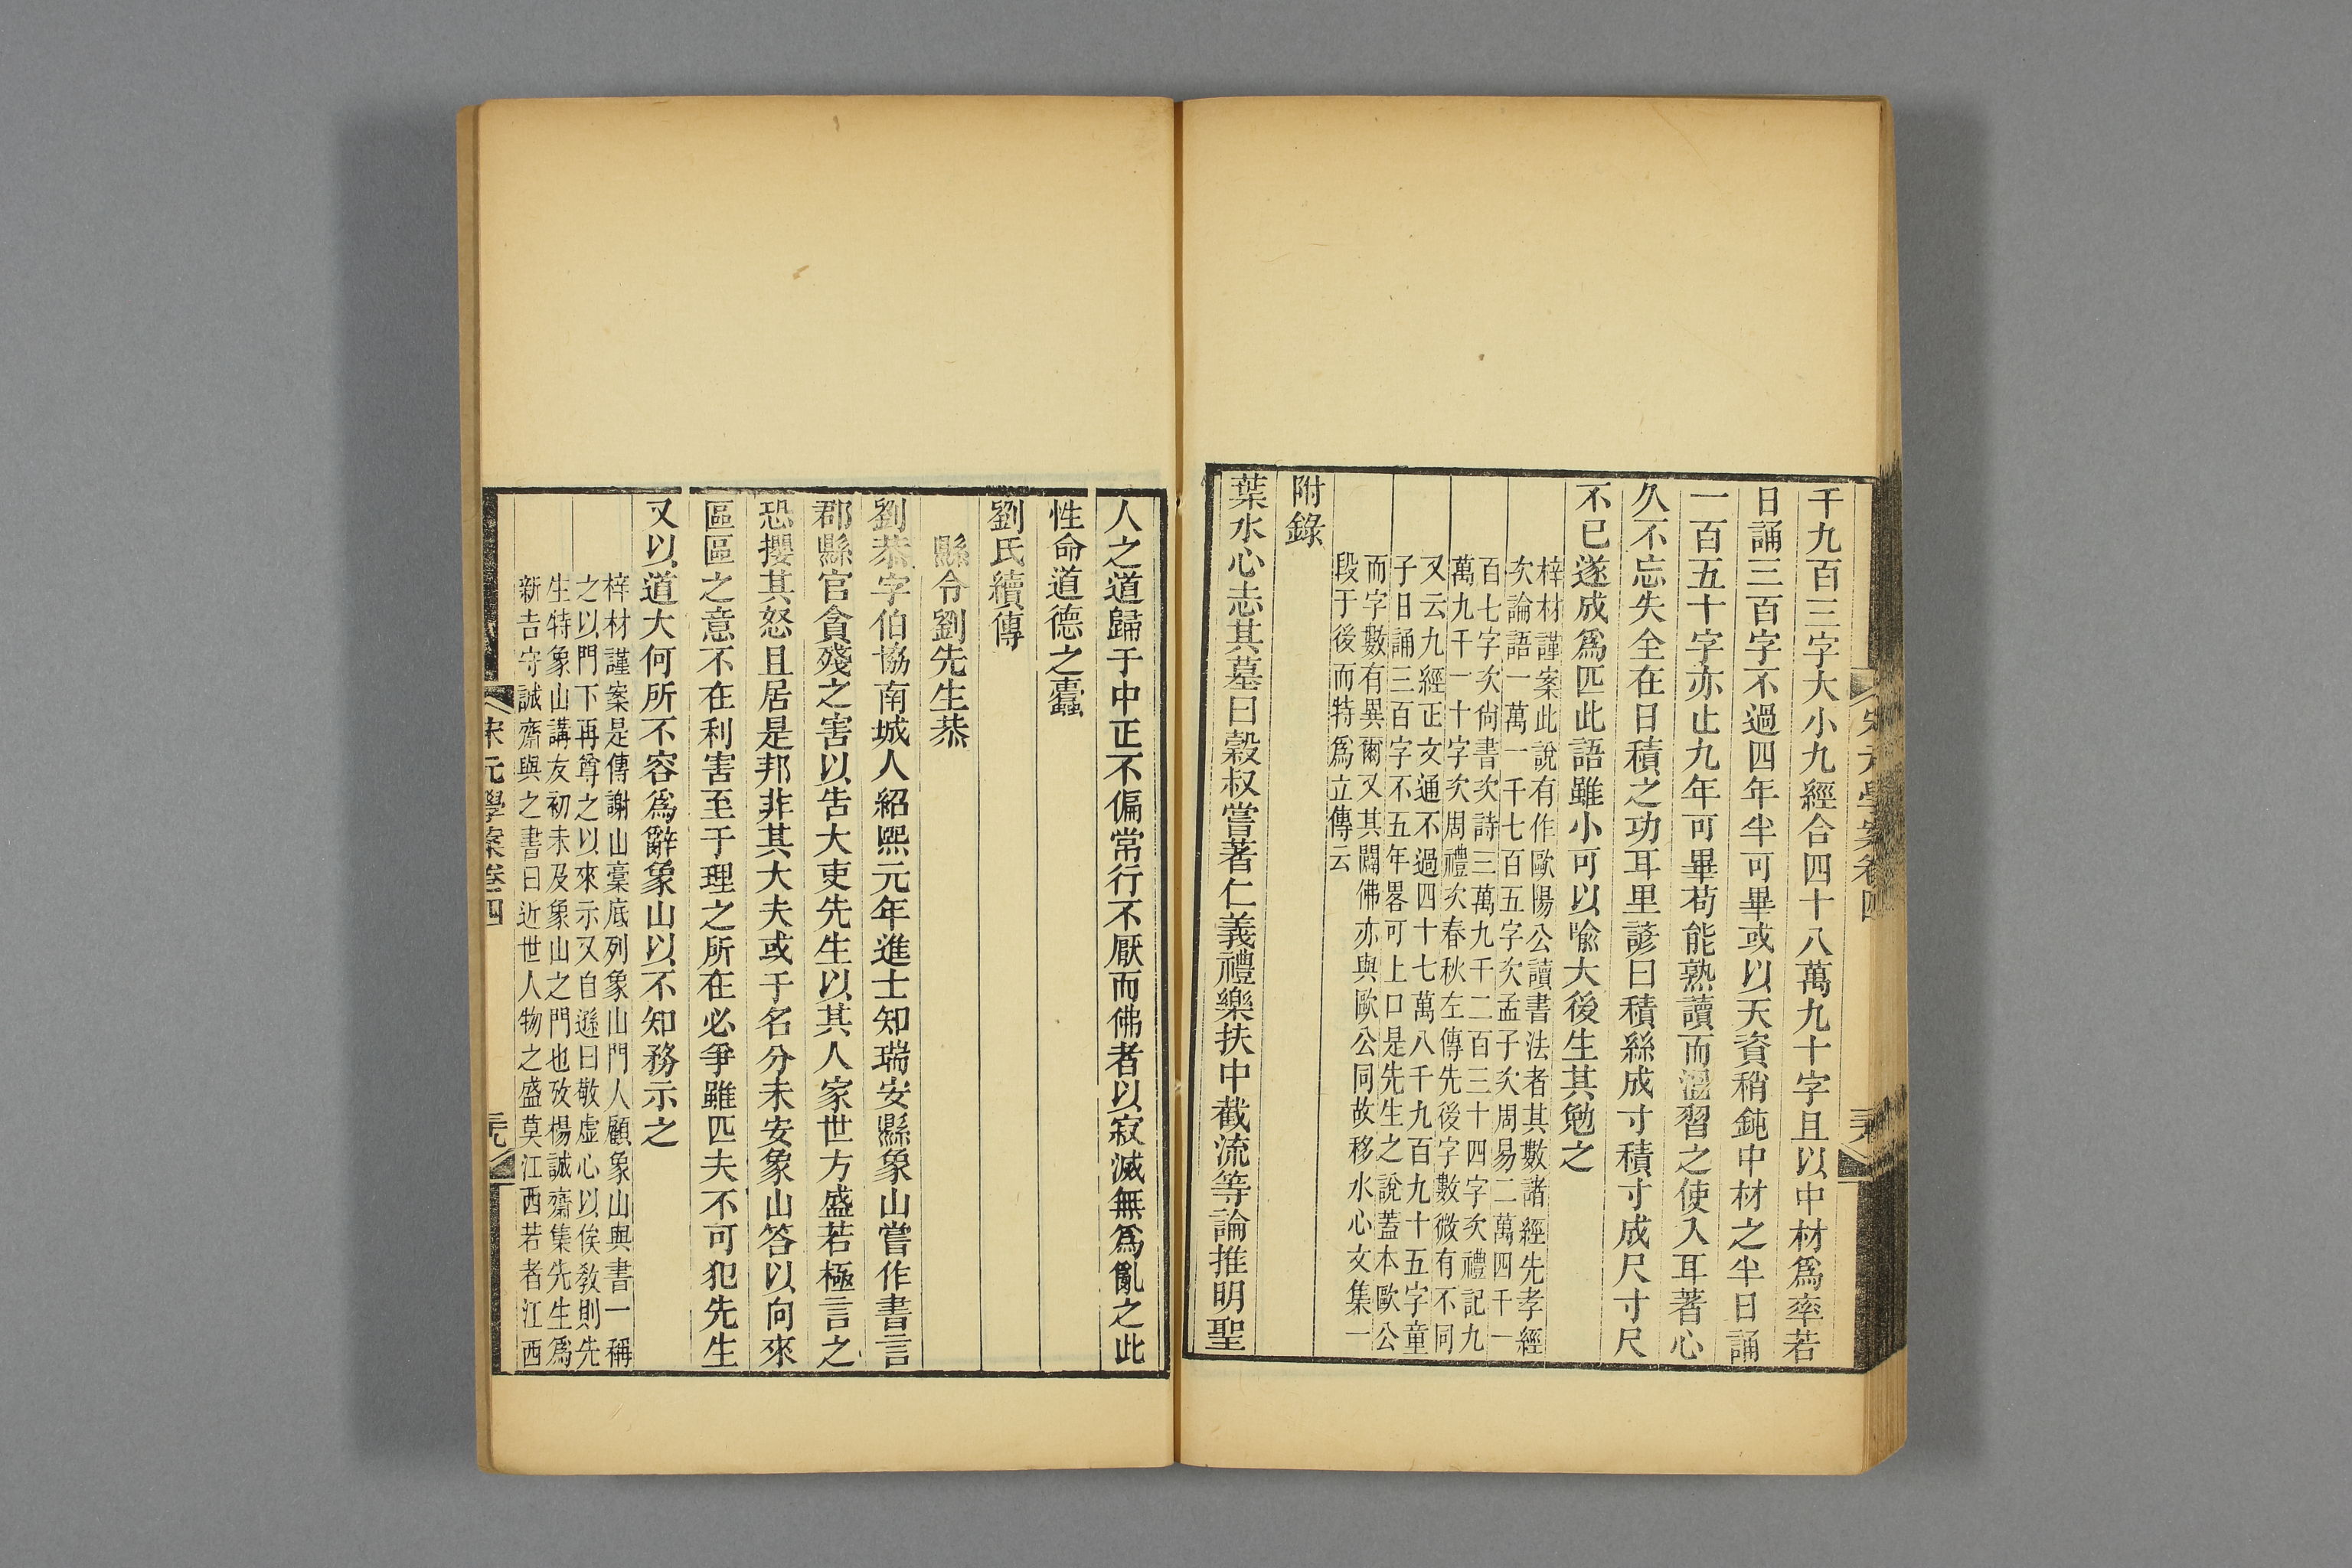 宋元學案卷四
千九百三字大小九經合四十八萬九十字且以中材爲率若
日誦三百字不過四年半可畢或以天資稍鈍中材之半日誦
一百五十字亦止九年可畢苟能熟讀而溫習之使入耳著心
久不忘失全在日積之功耳里諺曰積絲成寸積寸成尺寸尺
不已遂成爲匹此語雖小可以喻大後生其勉之
梓材謹案此說有作歐陽公讀書法者其數諸經先孝經
次論語一萬一千七百五字次孟子次周易二萬四千一
百七字次尙書次詩三萬九千二百三十四字次禮記九
萬九千一十字次周禮次春秋左傳先後字數微有不同
又云九經正文通不過四十七萬八千九百九十五字童
子日誦三百字不五年畧可上口是先生之說蓋本歐公
而字數有異爾又其闢佛亦與歐公同故移水心文集一
段于後而特爲立傳云
附錄
葉水心志其墓曰穀叔嘗著仁義禮樂扶中截流等論推明聖
人之道歸于中正不偏常行不厭而佛者以寂滅無爲亂之此
性命道德之蠹
劉氏續傳
縣令劉先生恭
劉恭字伯協南城人紹熙元年進士知瑞安縣象山嘗作書言
郡縣官貪殘之害以告大吏先生以其人家世方盛若極言之
恐攖其怒且居是邦非其大夫或于名分未安象山答以向來
區區之意不在利害至于理之所在必爭雖匹夫不可犯先生
又以道大何所不容爲辭象山以不知務示之
梓材謹案是傳謝山稾底列象山門人顧象山與書一稱
之以門下再尊之以來示又自遜曰敬虛心以俟敎則先
生特象山講友初未及象山之門也攷楊誠齋集先生爲
新吉守誠齋與之書曰近世人物之盛莫江西若者江西
宋元學案卷四